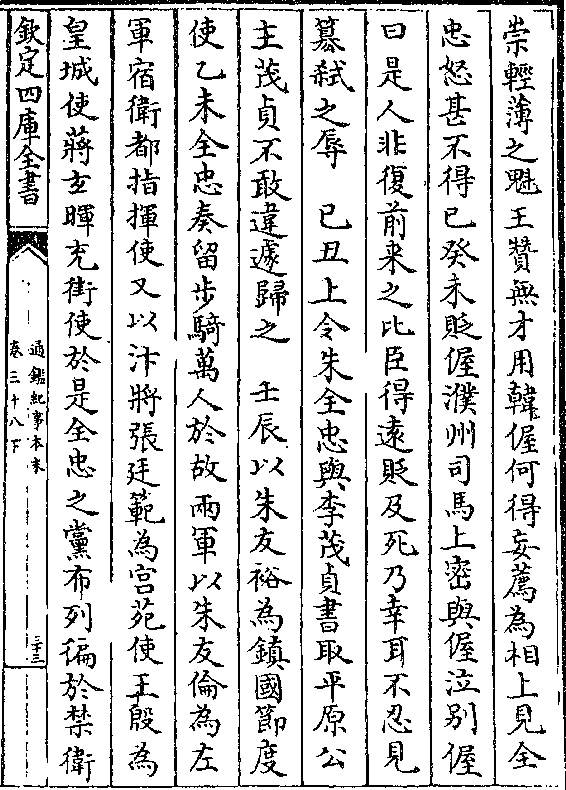 崇輕薄之魁王贊無才用韓偓何得妄薦為相上見全
忠怒甚不得已癸未貶偓濮州司馬上密與偓泣别偓
曰是人非復前来之比臣得遠貶及死乃幸耳不忍見
篡弑之辱　已丑上令朱全忠與李茂貞書取平原公
主茂貞不敢違遽歸之　壬辰以朱友裕為鎮國節度
使乙未全忠奏留步騎萬人於故兩軍以朱友倫為左
軍宿衛都指揮使又以汴將張廷範為宫苑使王殷為
皇城使蔣玄暉充街使於是全忠之黨布列徧於禁衛
欽定四庫全書
通鑑紀事本末
卷三十八下
三十三